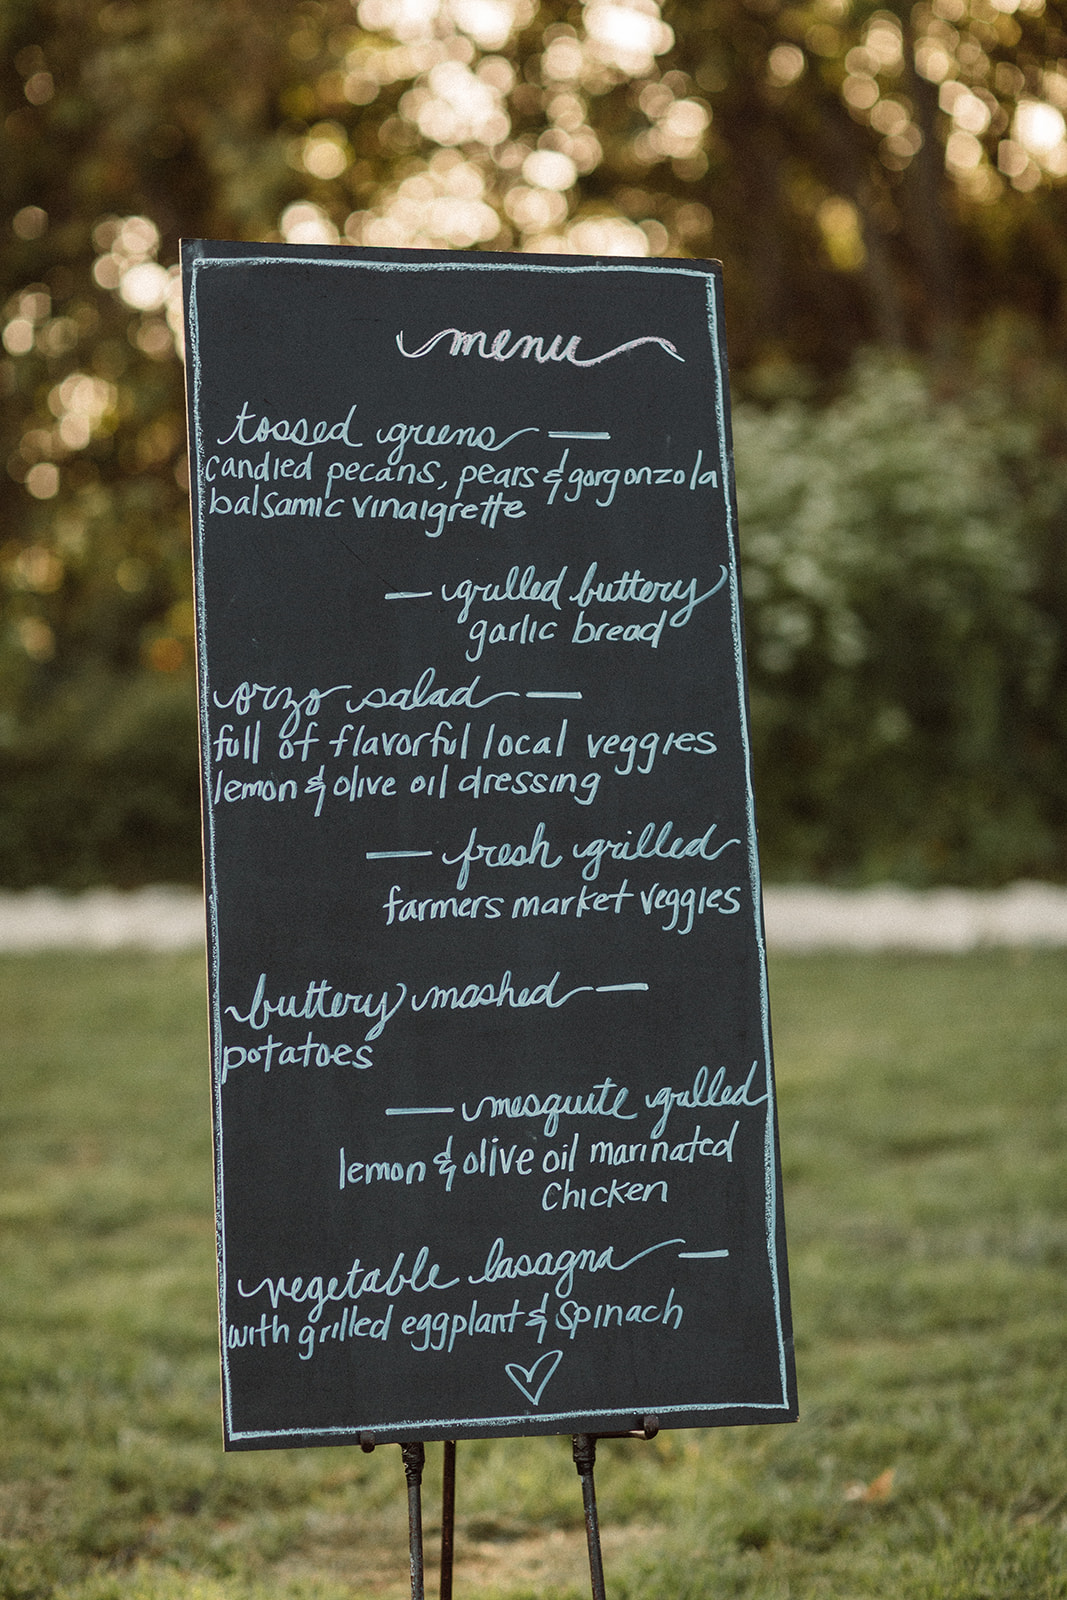 menu
tossed greens —
candied pecans, pears & gorgonzola
balsamic vinaigrette
— grilled buttery
garlic bread
orzo salad —
full of flavorful local veggies
lemon & olive oil dressing
— fresh grilled
farmers market veggies
buttery mashed —
potatoes
— mesquite grilled
lemon & olive oil marinated
chicken
vegetable lasagna —
with grilled eggplant & spinach